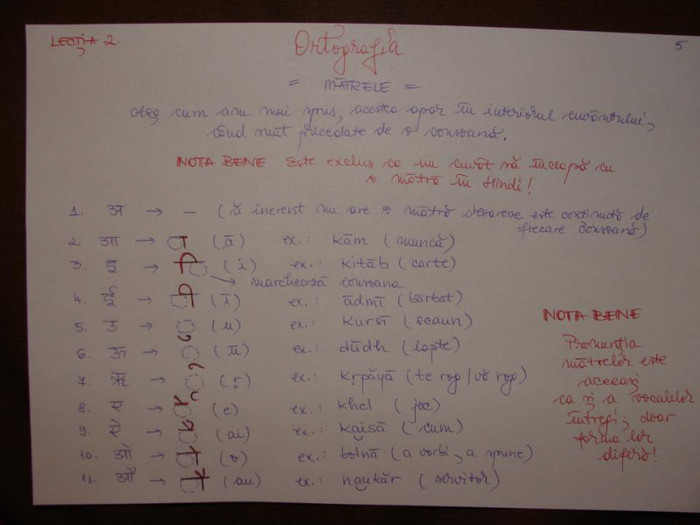 LECȚIA 2.
5
Ortografia
= MĀTRELE =
cum am mai spus, acestea apar în interiorul cuvântului,
când sunt precedate de o consoană.
NOTA BENE Este exclus ca un cuvât să înceapă cu
o mātră în Hindi!
1. अ → – (ă inerent nu are o mātră deoarece este conținută de
fiecare consoană)
2. आ → ा (ā) ex.: kām (muncă)
3. इ → ि (i) ex.: kitāb (carte)
marchează consoana
4. ई → ी (ī) ex.: ādmī (bărbat)
5. उ → ु (u) ex.: kursī (scaun)
6. ऊ → ू (ū) ex.: dūdh (lapte)
7. ऋ → ृ (ṛ) ex.: kṛpāyā (te rog / vă rog)
8. ए → े (e) ex.: khel (joc)
9. ऐ → ै (ai) ex.: kaisā (cum)
10. ओ → ो (o) ex.: bolnā (a vorbi, a spune)
11. औ → ौ (au) ex.: naukār (servitor)
NOTA BENE
Pronunția
mātrelor este
aceeași
ca și a vocalelor
întregi, doar
forma lor
diferă!